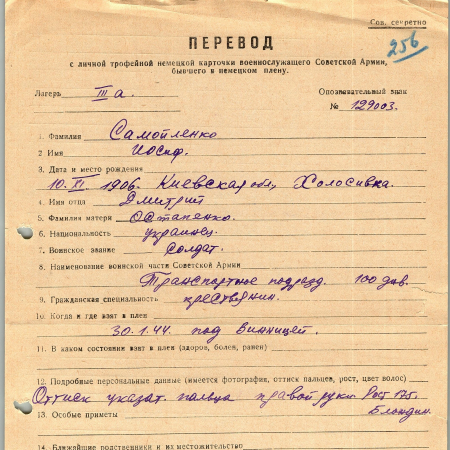 Сов. секретно
256
ПЕРЕВОД
с личной трофейной немецкой карточки военнослужащего Советской Армии,
бывшего в немецком плену.
Лагерь III а.
Опознавательный знак
№ 129003.
1. Фамилия Самойленко
2 Имя Иосиф.
3. Дата и место рождения
10. XI. 1906. Киевская обл, Холосивка.
4. Имя отца Дмитрий
5. Фамилия матери Остапенко.
6. Национальность украинец.
7. Воинское звание солдат.
8. Наименование воинской части Советской Армии
Транспортное подразд. 100 див.
9. Гражданская специальность крестьянин.
10. Когда и где взят в плен
30.1.44. под Винницей.
11. В каком состоянии взят в плен (здоров, болен, ранен)
12. Подробные персональные данные (имеется фотография, оттиск пальцев, рост, цвет волос)
Оттиск указат. пальца правой руки Рост 175.
Блондин.
13. Особые приметы
14. Ближайшие родственники и их местожительство